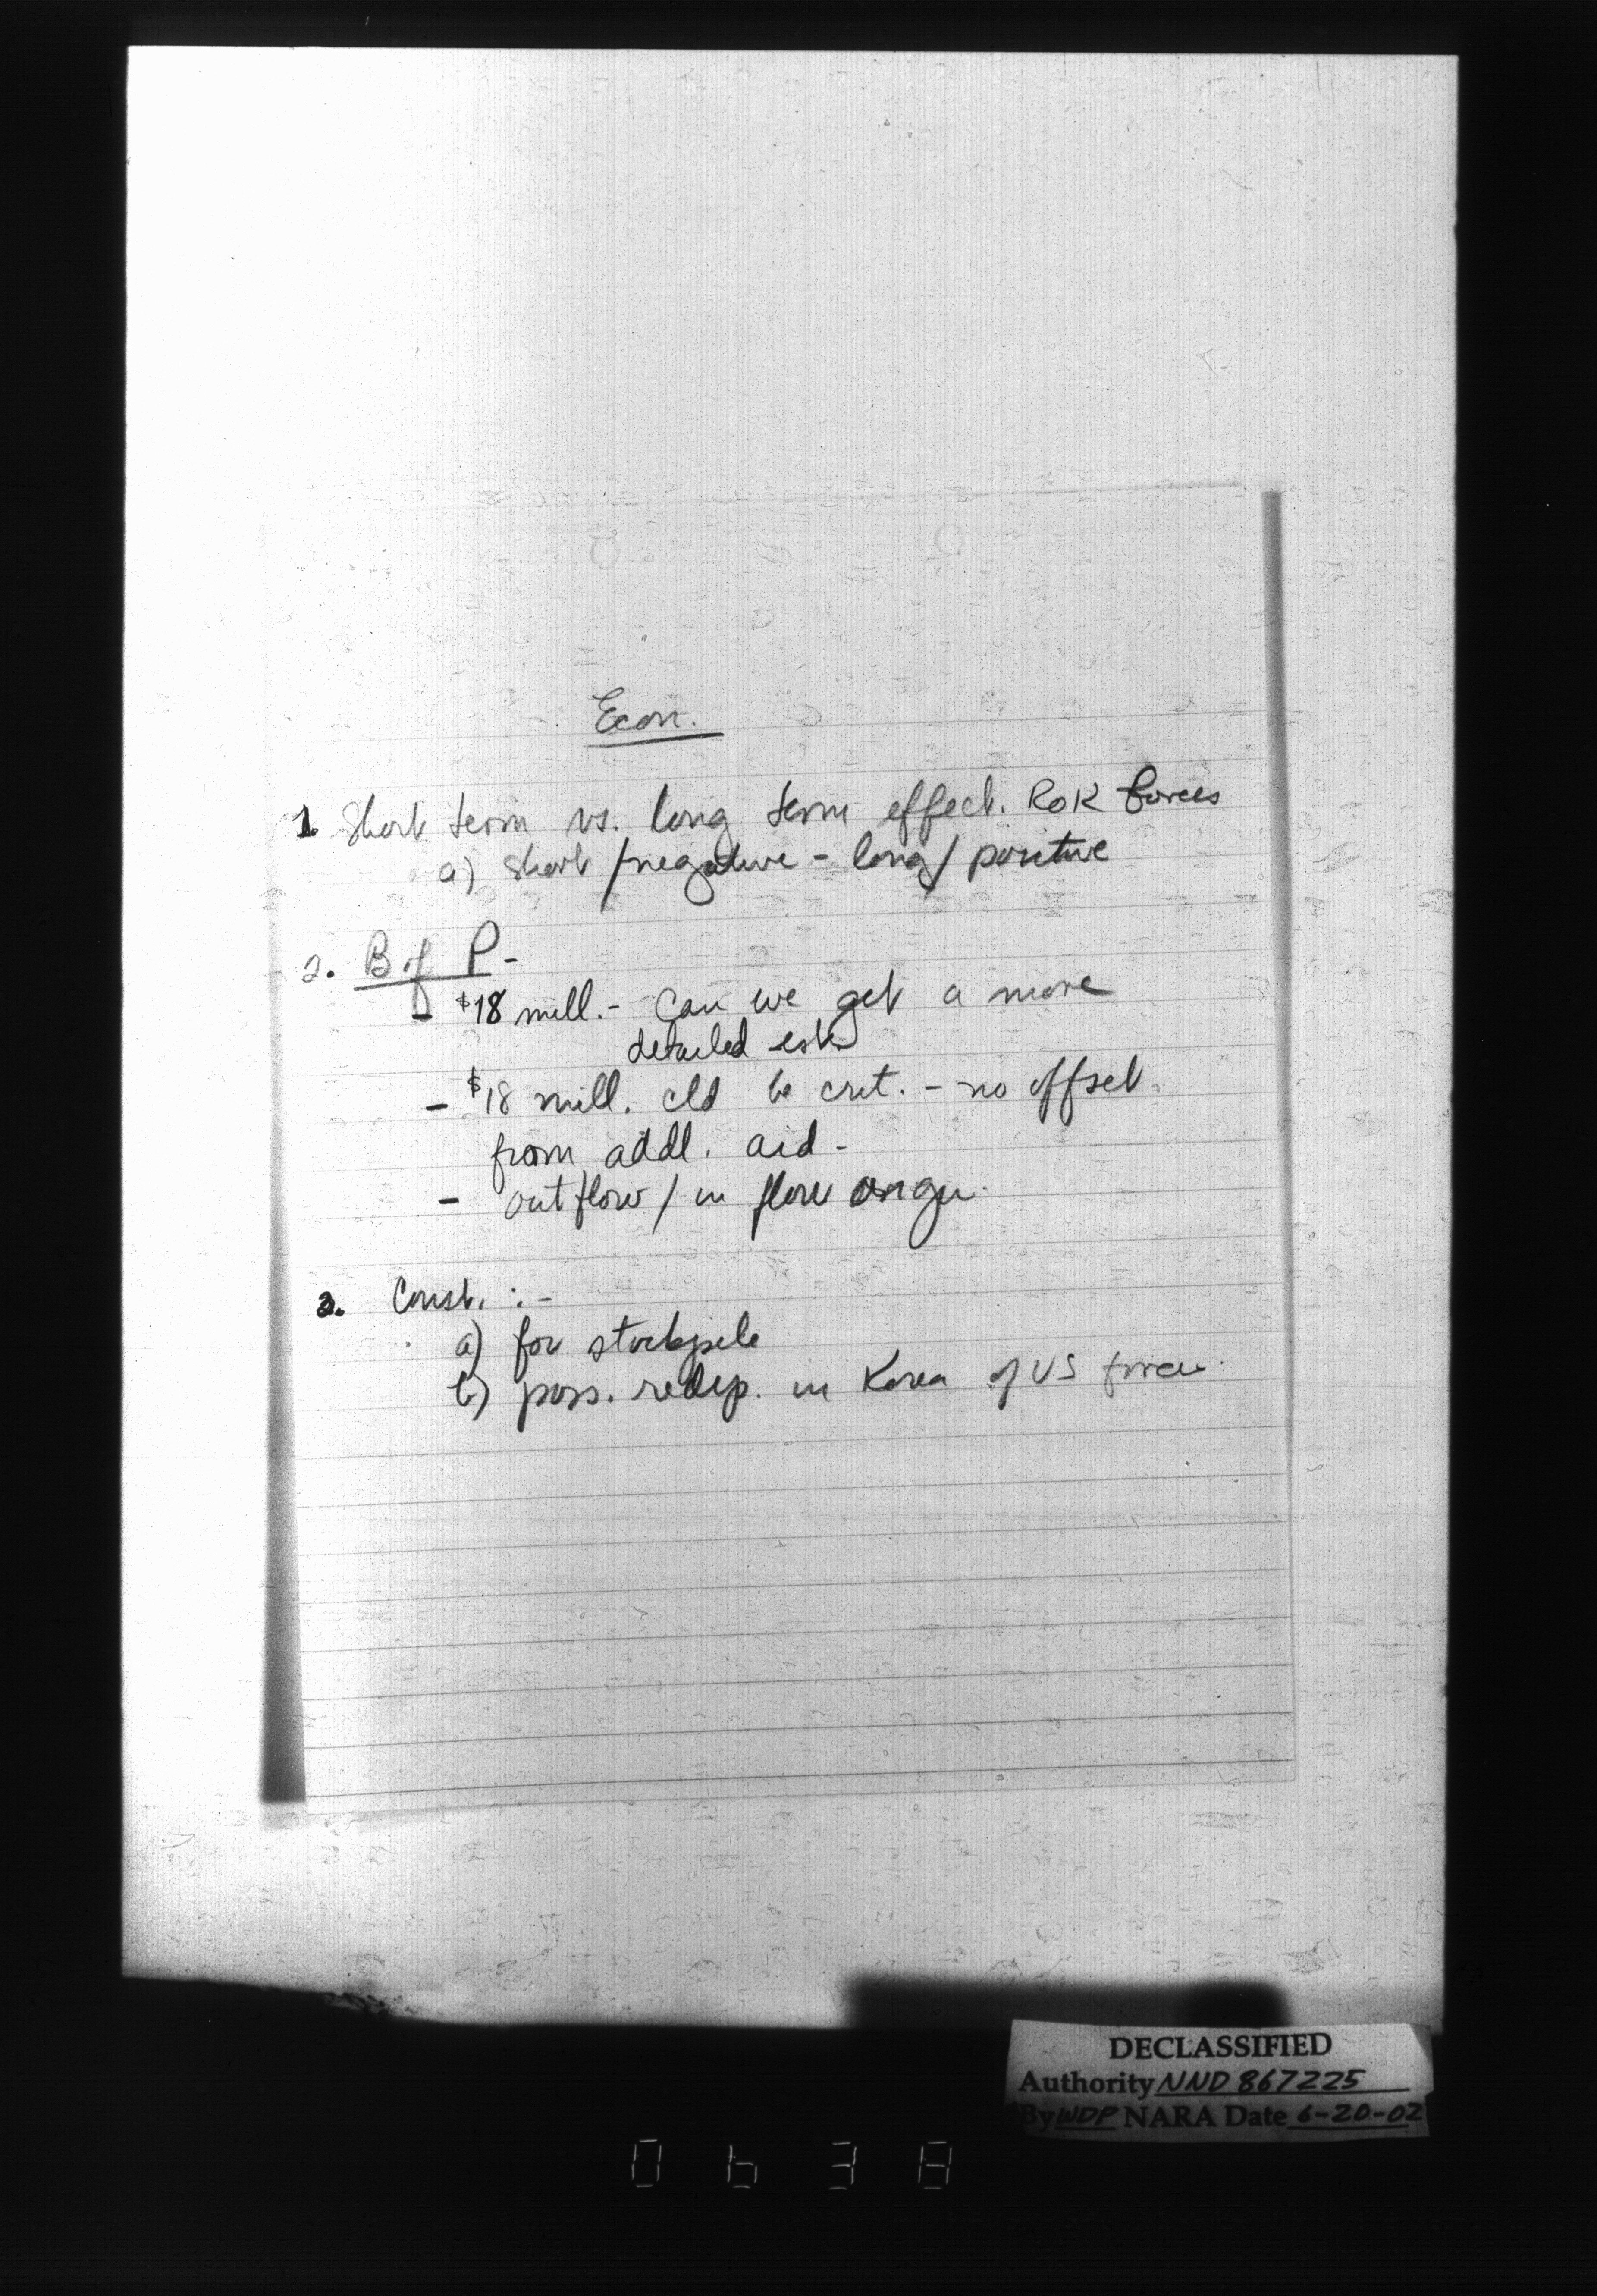 Econ.
1. Short term vs. long term effect. ROK forces
a) short/negative - long/positive
2. B of P -
- $18 mill. - Can we get a more
detailed est.
- $18 mill. cld be crit. - no offset
from addl. aid -
- outflow / in flow
3. Const. : -
a) for stockpile
b) poss. redep. in Korea of US forces.
DECLASSIFIED
Authority NND 867225
By WDP NARA Date 6-20-02
0638